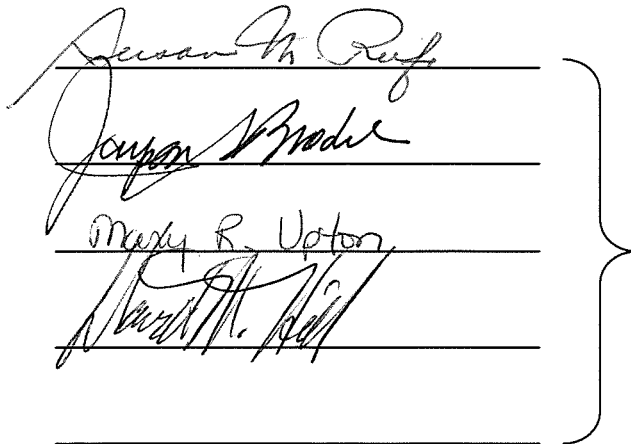 Susan M. Reif
Brodie
Mary R. Upton
David M. Hill